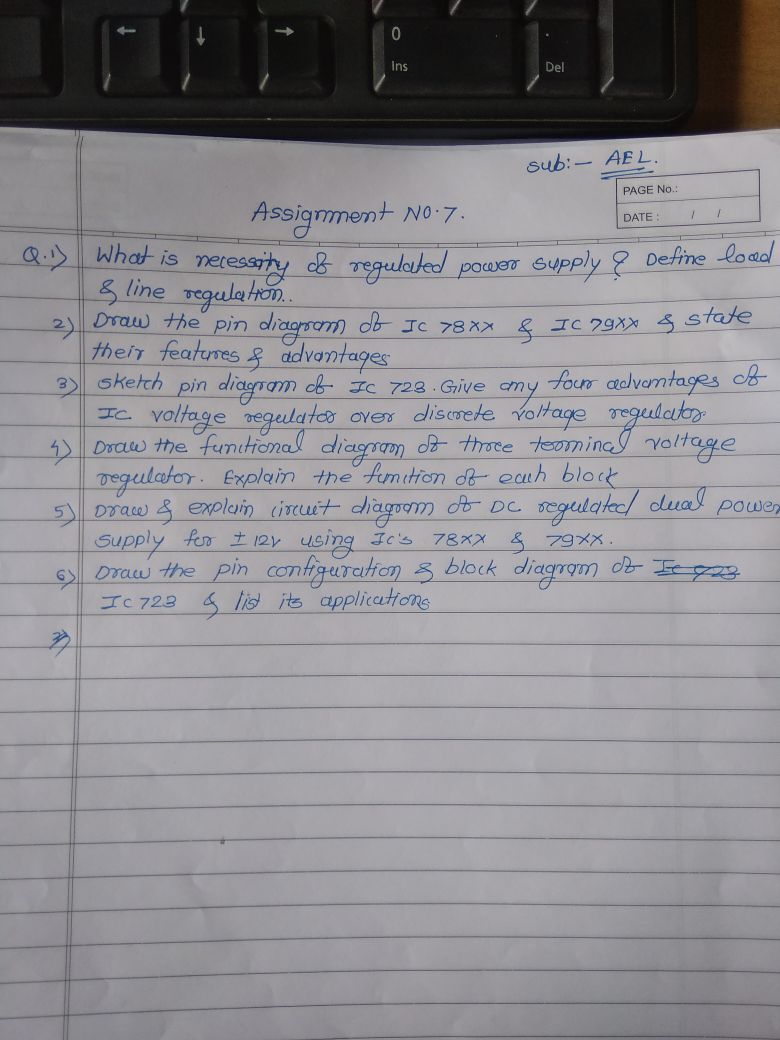 ←
↓
→
0
Ins
.
Del
Sub:- AEL.
PAGE No.:
DATE : / /
Assignment NO.7.
Q.1) What is necessity of regulated power supply? Define load
& line regulation..
2) Draw the pin diagram of IC 78XX & IC 79XX & state
their features & advantages
3) Sketch pin diagram of IC 723. Give any four advantages of
IC voltage regulator over discrete voltage regulator.
4) Draw the funitional diagram of three terminal voltage
regulator. Explain the funition of each block
5) Draw & explain circuit diagram of DC regulated dual power
supply for ± 12V using Ic's 78XX & 79XX.
6) Draw the pin configuration & block diagram of Ic 723
Ic 723 & list its applications
7)